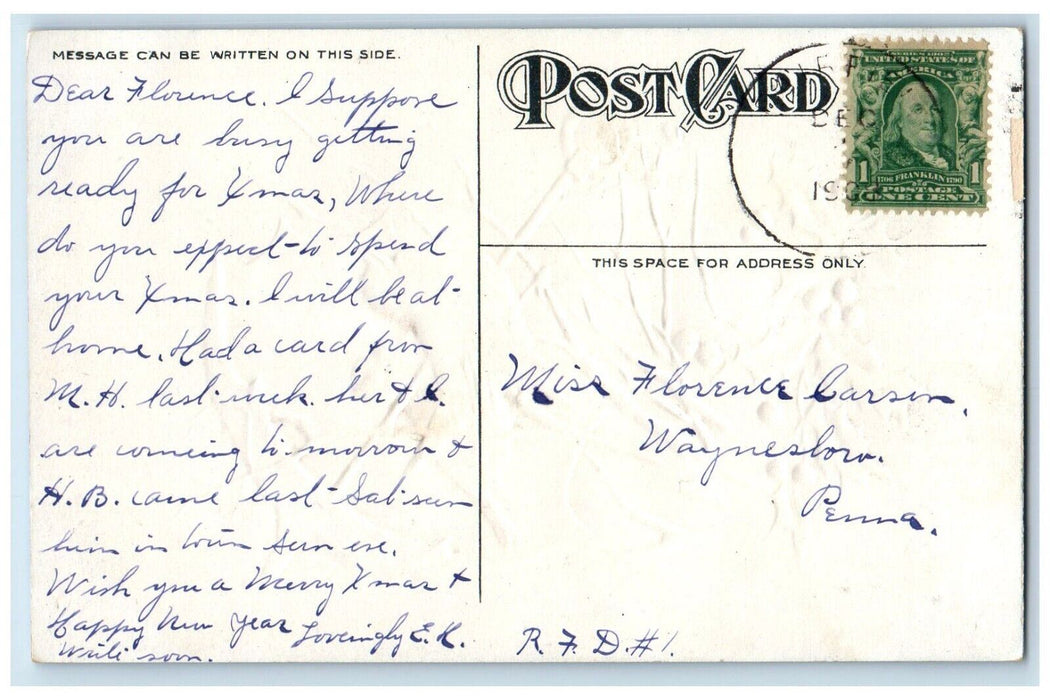 MESSAGE CAN BE WRITTEN ON THIS SIDE.
Dear Florence. I suppose
you are busy getting
ready for Xmas, Where
do you expect to spend
your Xmas. I will be at
home. Had a card from
M. H. last week. her & C.
are comeing to morrow &
H. B. came last Sat seen
him in town Sun eve.
Wish you a Merry Xmas &
Happy New Year Loveingly E. K.
Write soon.
POST CARD
DEC
190
SERIES 1902
UNITED STATES OF
AMERICA
1 1
1706 FRANKLIN 1790
POSTAGE
ONE CENT
THIS SPACE FOR ADDRESS ONLY.
Miss Florence Carson.
Waynesboro.
Penna.
R. F. D. #1.